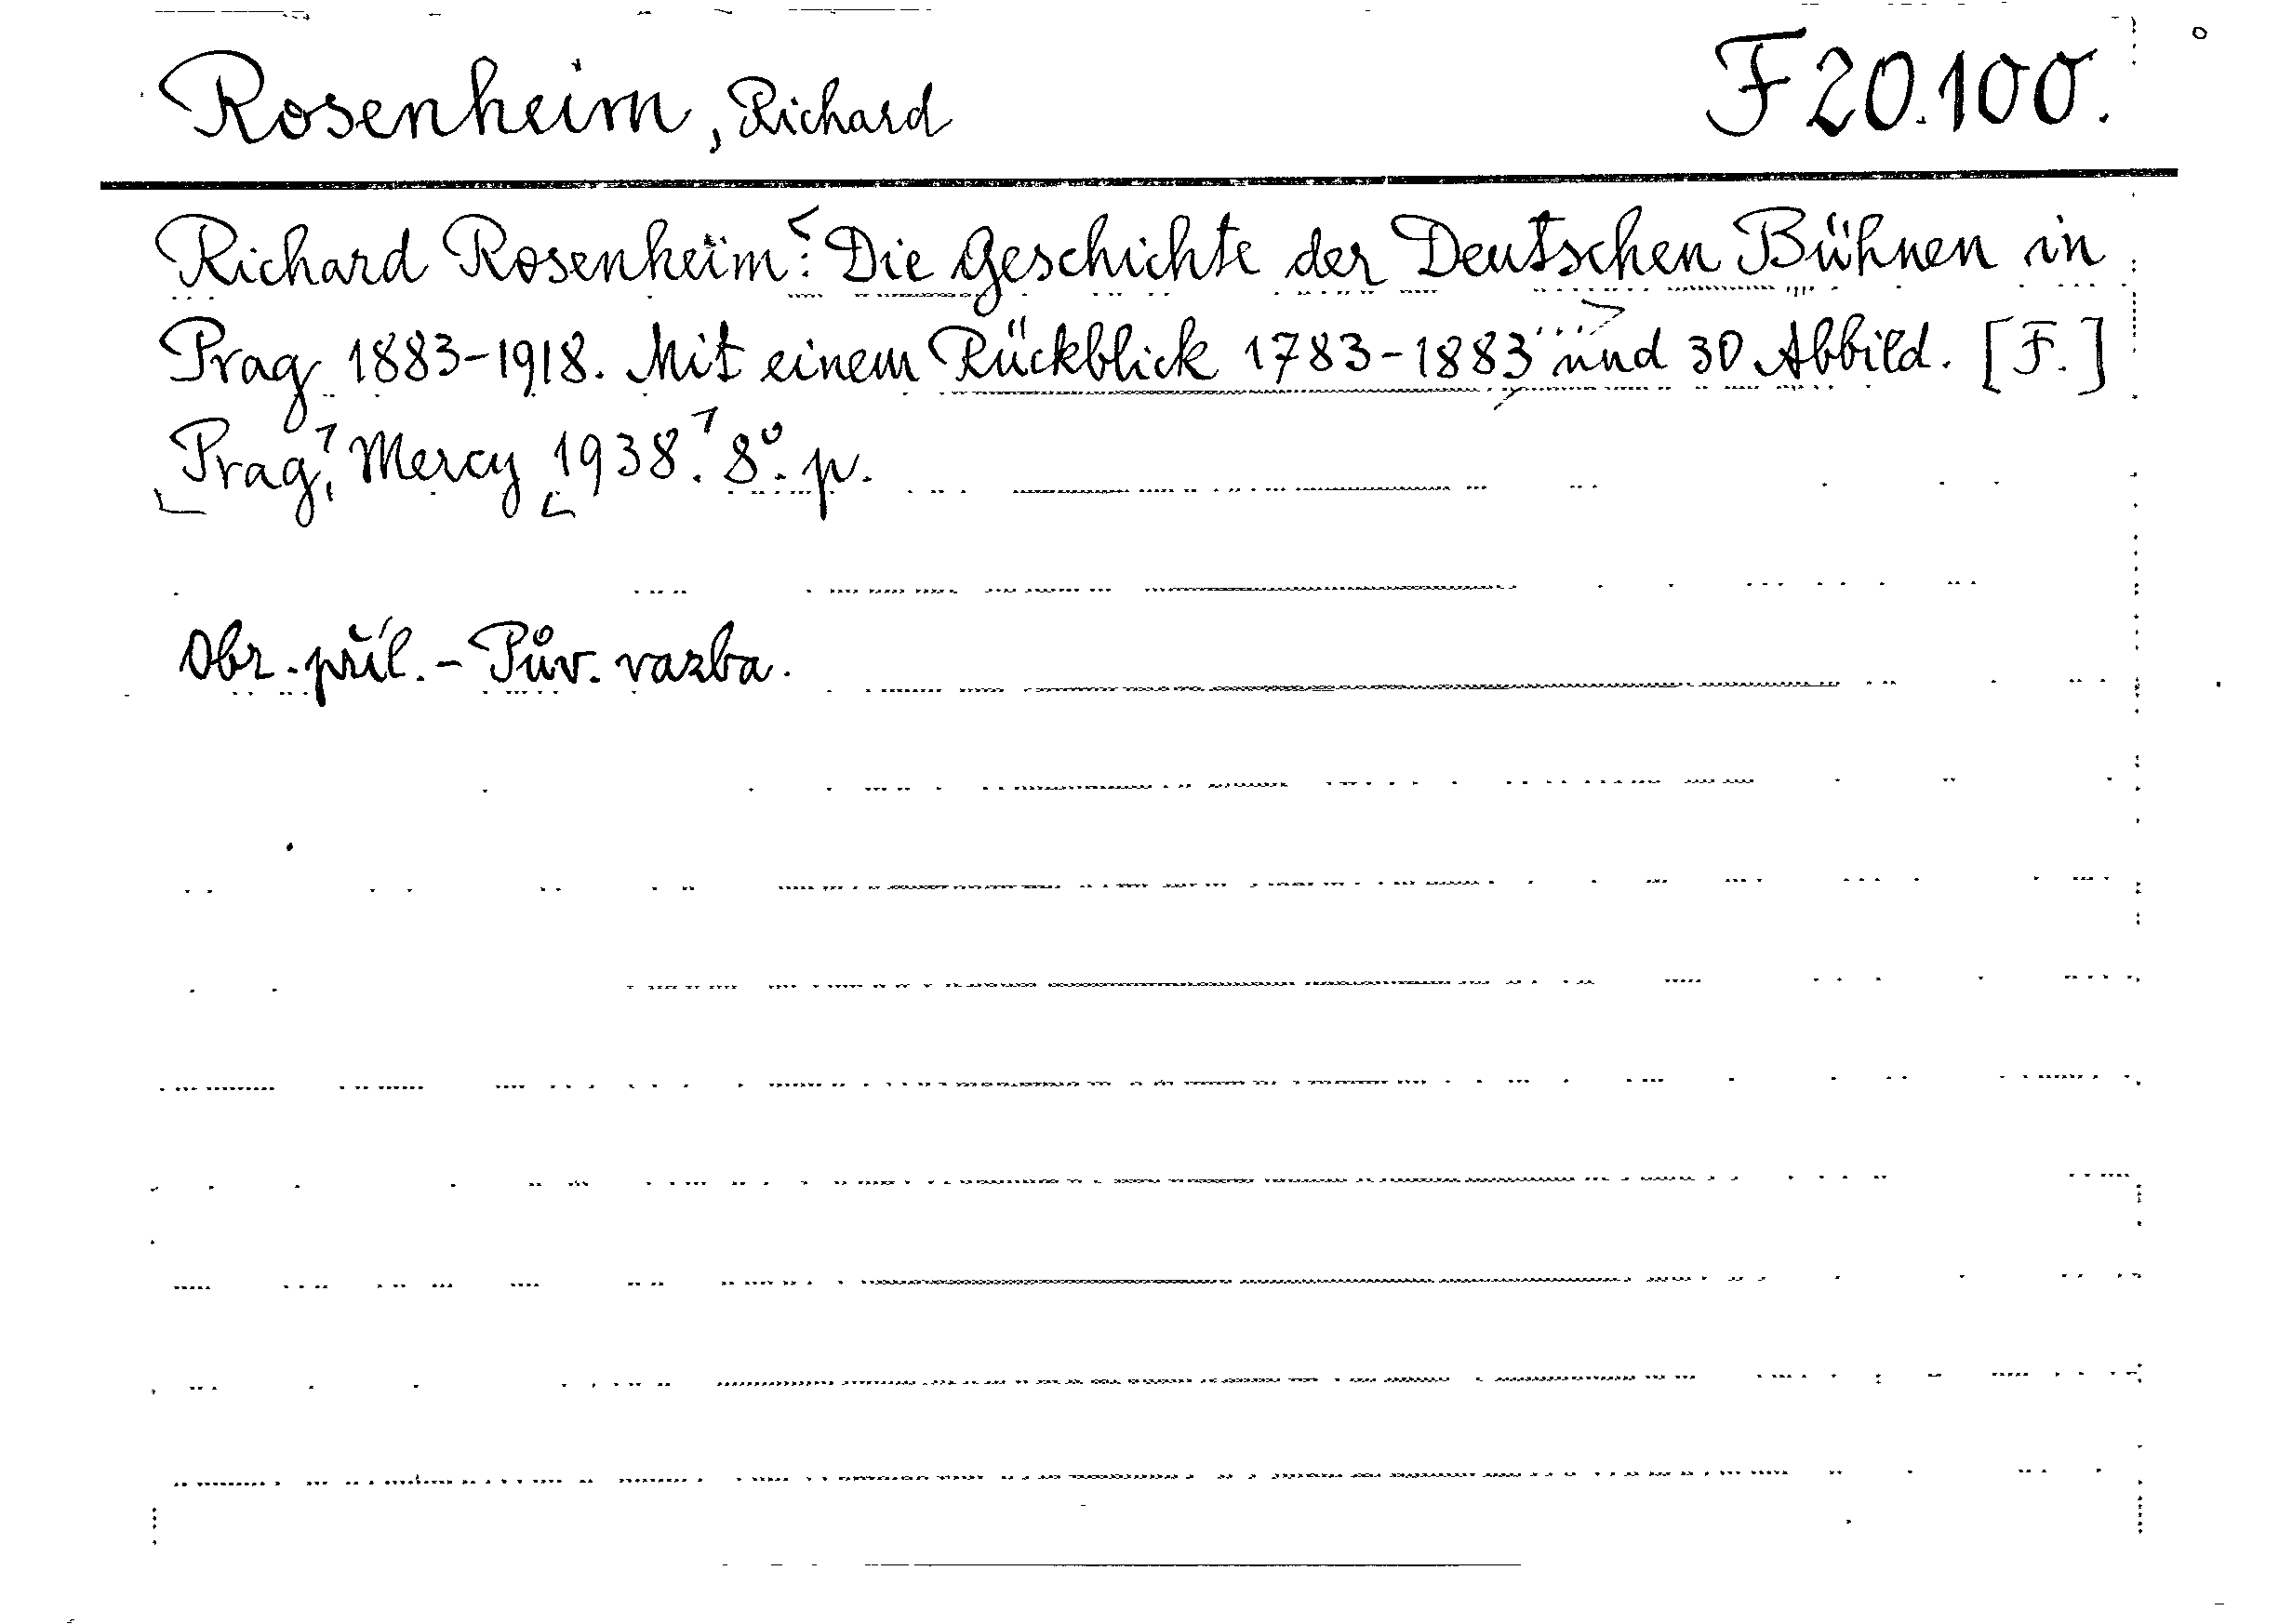 Rosenheim, Richard F 20.100.
Richard Rosenheim: Die Geschichte der Deutschen Bühnen in
Prag 1883-1918. Mit einem Rückblick 1783-1883 und 30 Abbild. [F.]
Prag, Mercy 1938. 8°. p.
Obr. příl. - Pův. vazba.